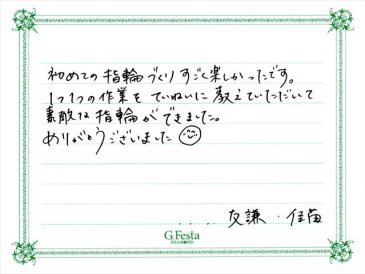 初めての指輪づくりすごく楽しかったです。
1つ1つの作業をていねいに教えていただいて
素敵な指輪ができました。
ありがとうございました
友謙・佳苗
G.Festa
DIAMOND